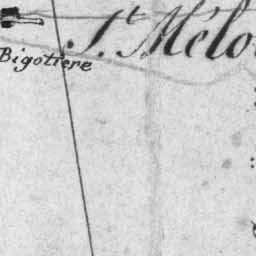 S.t Mélo
Bigotiere